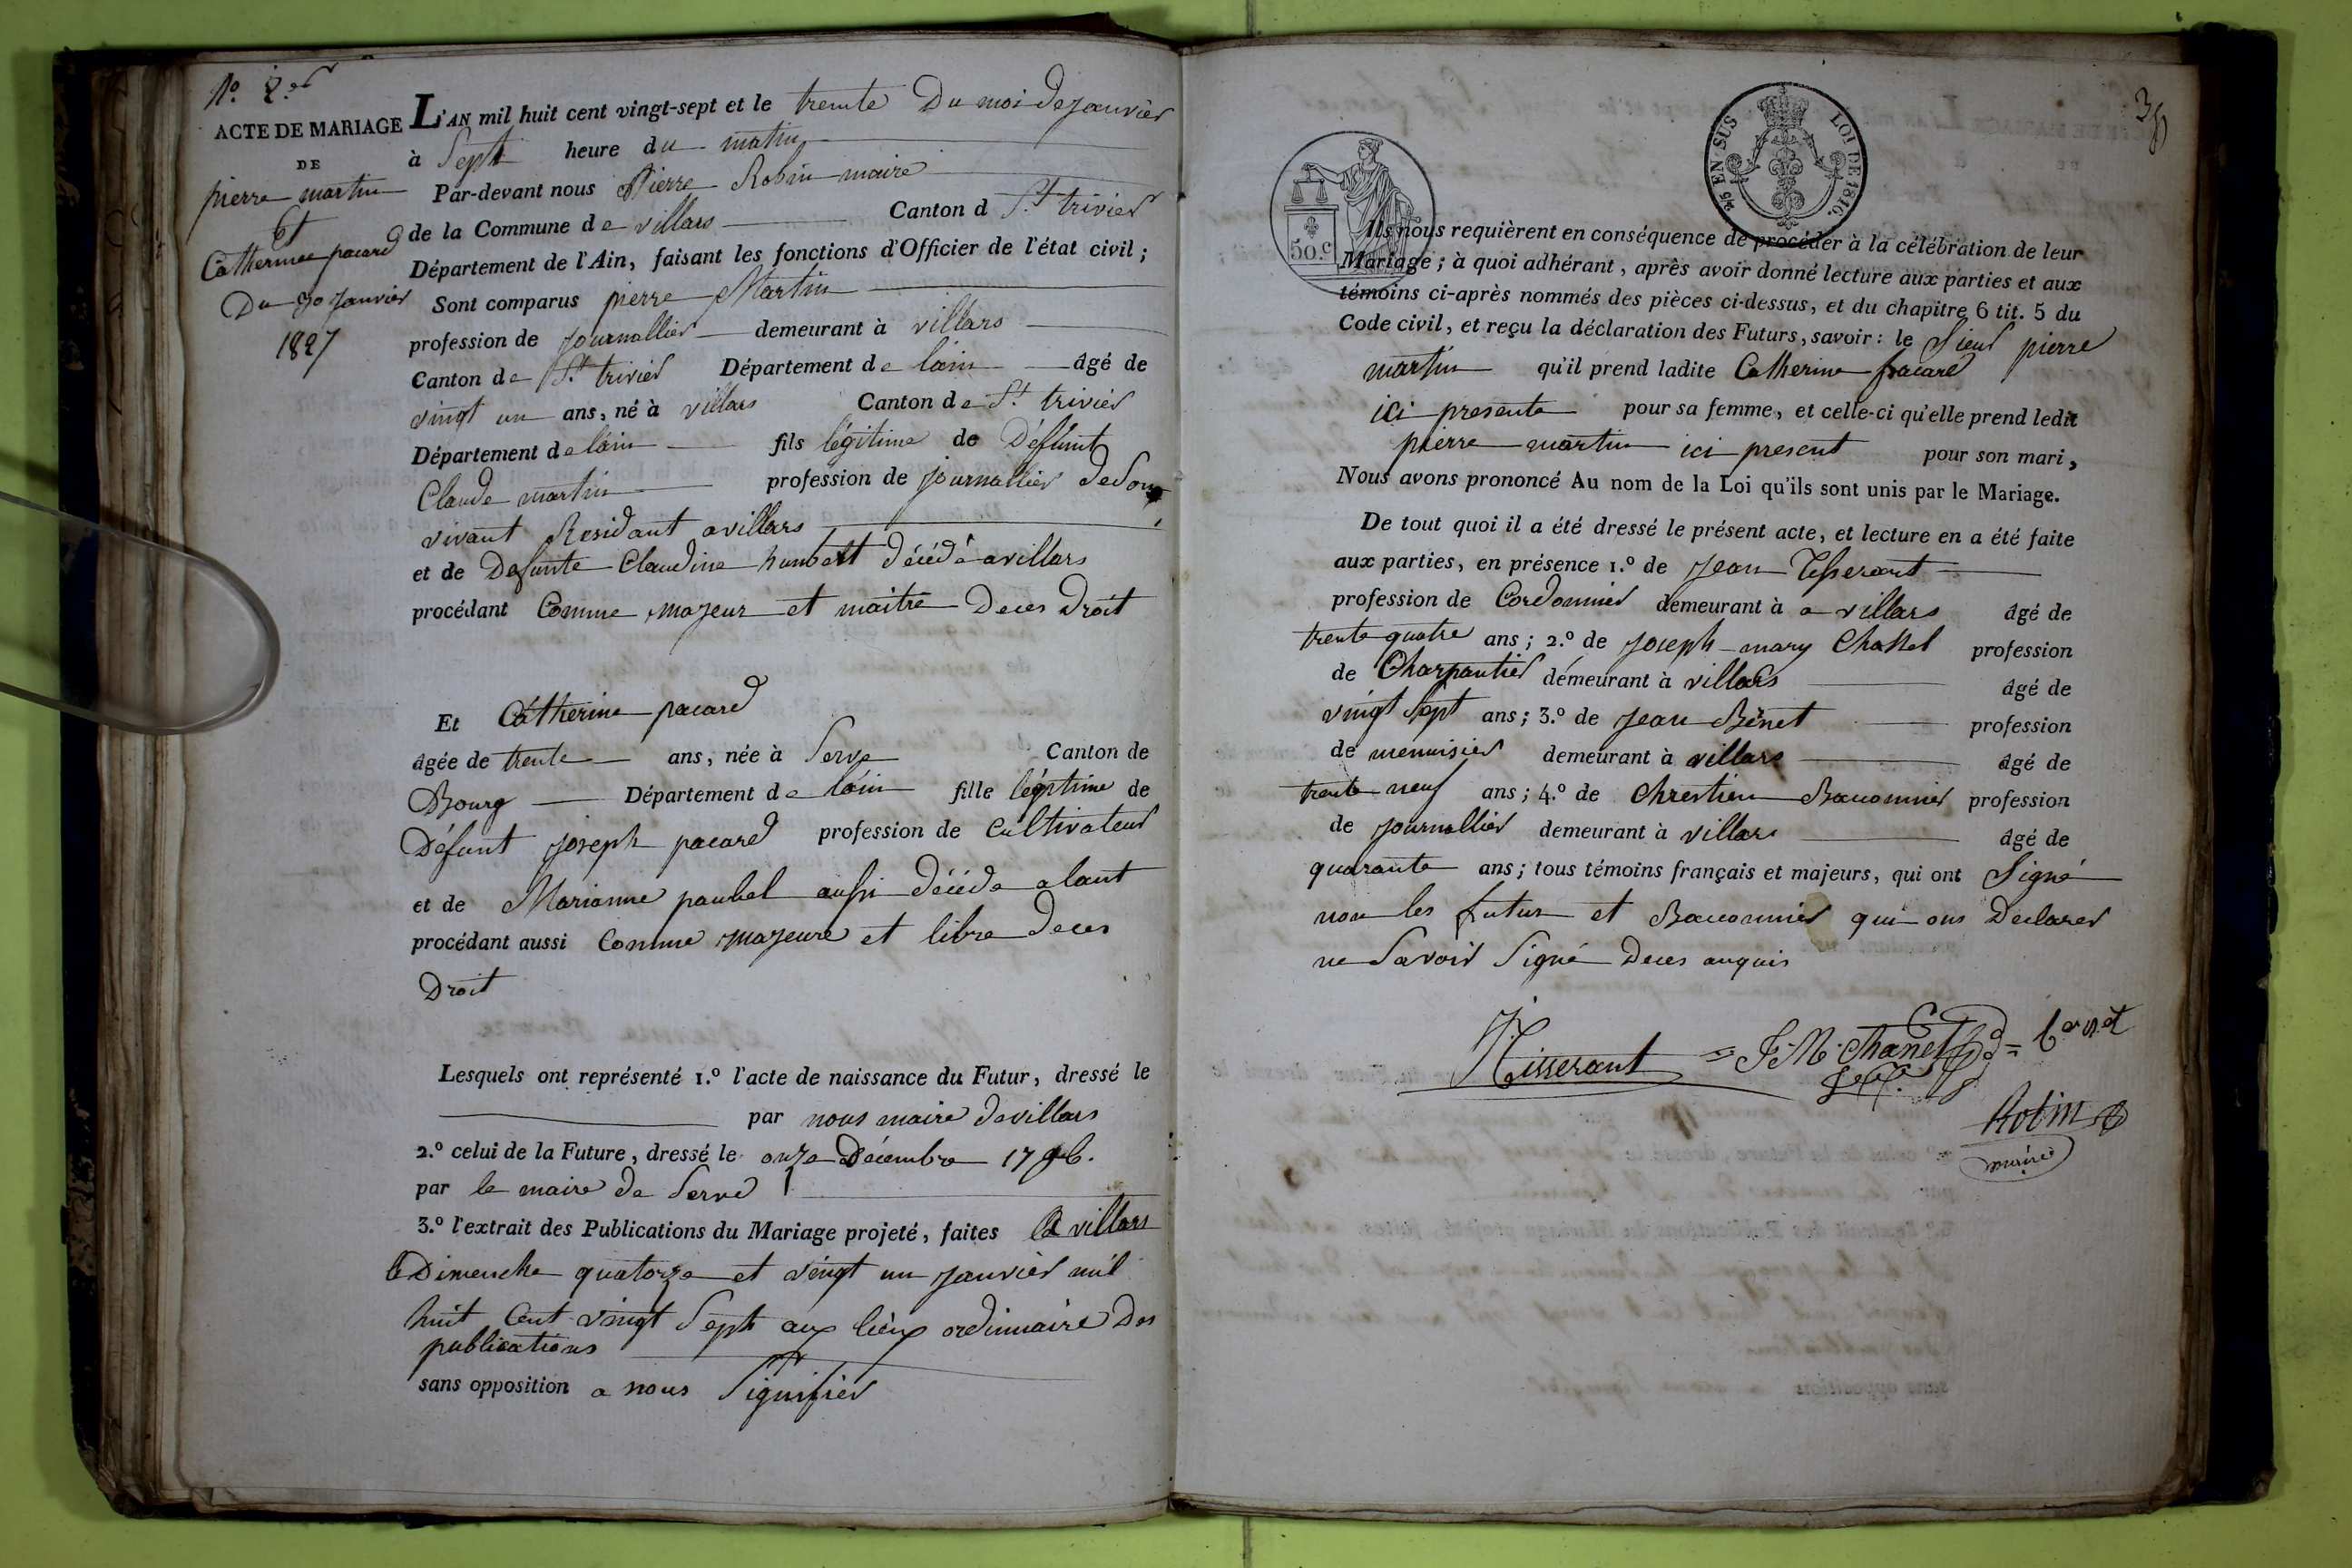 N.º 2.
ACTE DE MARIAGE
DE
pierre martin
Et
Catherine pacard
Du 30 Janvier
1827
L'AN mil huit cent vingt-sept et le trente Du moi de Janvier
à Sept heure du matin
Par-devant nous Pierre Robin maire
de la Commune de villars Canton d St trivier
Département de l'Ain, faisant les fonctions d'Officier de l'état civil ;
Sont comparus pierre Martin
profession de journallier demeurant à villars
Canton de St trivier Département de lain âgé de
vingt un ans, né à villars Canton de St trivier
Département de lain fils légitime de Défunt
Claude martin profession de journallier de Son
vivant Residant a villars
et de Defunte Claudine humbert décédé a villars
procédant Comme majeur et maitre De ces Droit
Et Catherine pacard
âgée de trente ans, née à Serve Canton de
Bourg Département de lain fille légitime de
Défunt joseph pacard profession de Cultivateur
et de Marianne paubel aussi décéde a lant
procédant aussi Comme majeure et libre De ces
Droit
Lesquels ont représenté 1.º l'acte de naissance du Futur, dressé le
par nous maire de villars
2.º celui de la Future, dressé le onze Décembre 1796.
par le maire de Serve
3.º l'extrait des Publications du Mariage projeté, faites a villars
le Dimenche quatorze et vingt un janvier mil
huit Cent vingt Sept aux lieux ordinnaire Des
publications
sans opposition a nous Signifier
3
50.c
25 EN SUS LOI DE 1816.
Ils nous requièrent en conséquence de procéder à la célébration de leur
Mariage ; à quoi adhérant, après avoir donné lecture aux parties et aux
témoins ci-après nommés des pièces ci-dessus, et du chapitre 6 tit. 5 du
Code civil, et reçu la déclaration des Futurs, savoir : le Sieur pierre
martin qu'il prend ladite Catherine pacard
ici presente pour sa femme, et celle-ci qu'elle prend ledit
pierre martin ici present pour son mari,
Nous avons prononcé Au nom de la Loi qu'ils sont unis par le Mariage.
De tout quoi il a été dressé le présent acte, et lecture en a été faite
aux parties, en présence 1.º de Jean Tisserant
profession de Cordonnier demeurant à a villars âgé de
trente quatre ans ; 2.º de Joseph mary Chanel profession
de Charpantier démeurant à villars âgé de
vingt Sept ans ; 3.º de Jean Bénet profession
de menuisier demeurant à villars âgé de
trente neuf ans ; 4.º de Chrestien Baconnier profession
de journallier demeurant à villars âgé de
quarante ans ; tous témoins français et majeurs, qui ont Signé
non les futur et Baconnier qui ons Declarer
ne Savoir Signé De ces anquis
J. Tisserant = J. M. Chanel = benet
Robin
maire